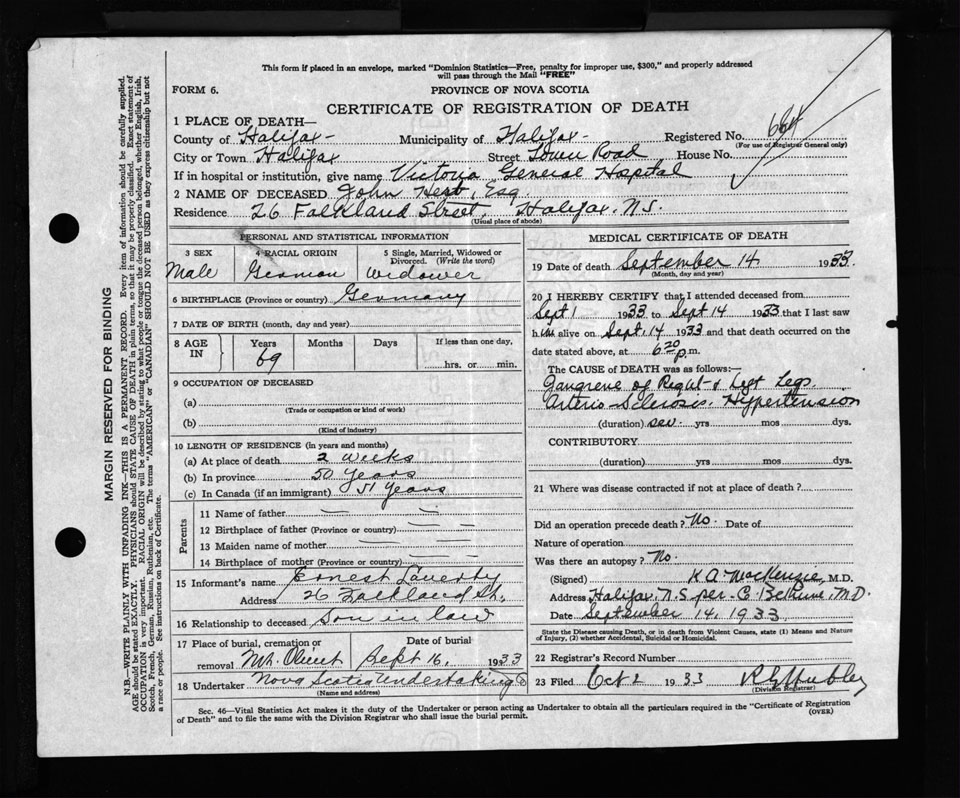 This form if placed in an envelope, marked "Dominion Statistics—Free, penalty for improper use, $300," and properly addressed
will pass through the Mail "FREE"
FORM 6.
PROVINCE OF NOVA SCOTIA
CERTIFICATE OF REGISTRATION OF DEATH
1 PLACE OF DEATH—
County of Halifax- Municipality of Halifax- Registered No. 664
(For use of Registrar General only)
City or Town Halifax Street Tower Road House No.
If in hospital or institution, give name Victoria General Hospital
2 NAME OF DECEASED John Esq.
Residence 26 Falkland Street, Halifax, N.S.
(Usual place of abode)
PERSONAL AND STATISTICAL INFORMATION
3 SEX 4 RACIAL ORIGIN 5 Single, Married, Widowed or Divorced. (Write the word)
Male German Widower
6 BIRTHPLACE (Province or country) Germany
7 DATE OF BIRTH (month, day and year)
8 AGE IN Years Months Days If less than one day,
69 hrs. or min.
9 OCCUPATION OF DECEASED
(a)
(Trade or occupation or kind of work)
(b)
(Kind of industry)
10 LENGTH OF RESIDENCE (in years and months)
(a) At place of death 2 Weeks
(b) In province 50 Years
(c) In Canada (if an immigrant) 51 Years
Parents
11 Name of father — —
12 Birthplace of father (Province or country) — —
13 Maiden name of mother — —
14 Birthplace of mother (Province or country) — —
15 Informant's name Ernest Laverty
Address 26 Falkland St.
16 Relationship to deceased Son in law
17 Place of burial, cremation or removal Mt. Olivet
Date of burial Sept 16, 1933
18 Undertaker Nova Scotia Undertaking Co
(Name and address)
MEDICAL CERTIFICATE OF DEATH
19 Date of death September 14 1933.
(Month, day and year)
20 I HEREBY CERTIFY that I attended deceased from
Sept 1 1933 to Sept 14 1933 that I last saw
him alive on Sept. 14 1933 and that death occurred on
date stated above, at 6.20 p.m.
The CAUSE of DEATH was as follows:—
Gangrene of Right & Left Legs.
Arterio-Sclerosis. Hypertension
(duration) sev. yrs mos dys.
CONTRIBUTORY
(duration) yrs mos dys.
21 Where was disease contracted if not at place of death?
Did an operation precede death? No. Date of
Nature of operation
Was there an autopsy? No.
(Signed) K.A. MacKenzie, M.D.
Address Halifax, N.S. per C. Bethune, M.D.
Date September 14, 1933.
State the Disease causing Death, or in death from Violent Causes, state (1) Means and Nature
of Injury, (2) whether Accidental, Suicidal or Homicidal.
22 Registrar's Record Number
23 Filed Oct 2 1933
(Division Registrar)
Sec. 46—Vital Statistics Act makes it the duty of the Undertaker or person acting as Undertaker to obtain all the particulars required in the "Certificate of Registration
of Death" and to file the same with the Division Registrar who shall issue the burial permit.
(OVER)
MARGIN RESERVED FOR BINDING
N.B.—WRITE PLAINLY WITH UNFADING INK—THIS IS A PERMANENT RECORD. Every item of information should be carefully supplied.
AGE should be stated EXACTLY. PHYSICIANS should STATE CAUSE OF DEATH in plain terms, so that it may be properly classified. Exact statement of
OCCUPATION is very important. RACIAL ORIGIN will be described by stating to what people or tongue the deceased person belonged, whether English, Irish,
Scotch, French, German, Russian, Ruthenian, etc. The terms "AMERICAN" or "CANADIAN" SHOULD NOT BE USED as they express citizenship but not
a race or people. See instructions on back of Certificate.